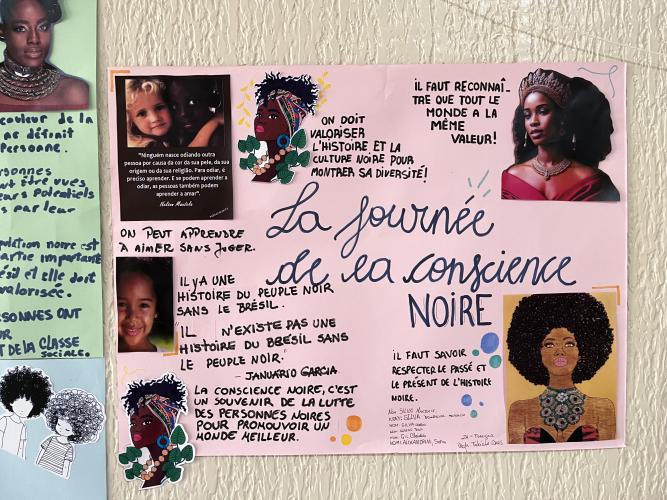 couleur de la
définit
personne.
rsonnes
être vues
leurs potentiels
s par leur
pulation noire est
partie importante
ésil et elle doit
valorisée.
ERSONNES ONT
T DE LA CLASSE
SOCIALES
"Ninguém nasce odiando outra
pessoa por causa da cor da sua pele, da sua
origem ou da sua religião. Para odiar, é
preciso aprender. E se podem aprender a
odiar, as pessoas também podem
aprender a amar".
Nelson Mandela
ON DOIT
VALORISER
L'HISTOIRE ET LA
CULTURE NOIRE POUR
MONTRER SA DIVERSITÉ!
IL FAUT RECONNAÎ-
TRE QUE TOUT LE
MONDE A LA
MÊME
VALEUR!
La journée
de la conscience
NOIRE
ON PEUT APPRENDRE
À AIMER SANS JUGER.
IL Y A UNE
HISTOIRE DU PEUPLE NOIR
SANS LE BRÉSIL.
"IL N'EXISTE PAS UNE
HISTOIRE DU BRÉSIL SANS
LE PEUPLE NOIR."
- JANUÁRIO GARCIA
LA CONSCIENCE NOIRE, C'EST
UN SOUVENIR DE LA LUTTE
DES PERSONNES NOIRES
POUR PROMOUVOIR UN
MONDE MEILLEUR.
IL FAUT SAVOIR
RESPECTER LE PASSÉ ET
LE PRÉSENT DE L'HISTOIRE
NOIRE.